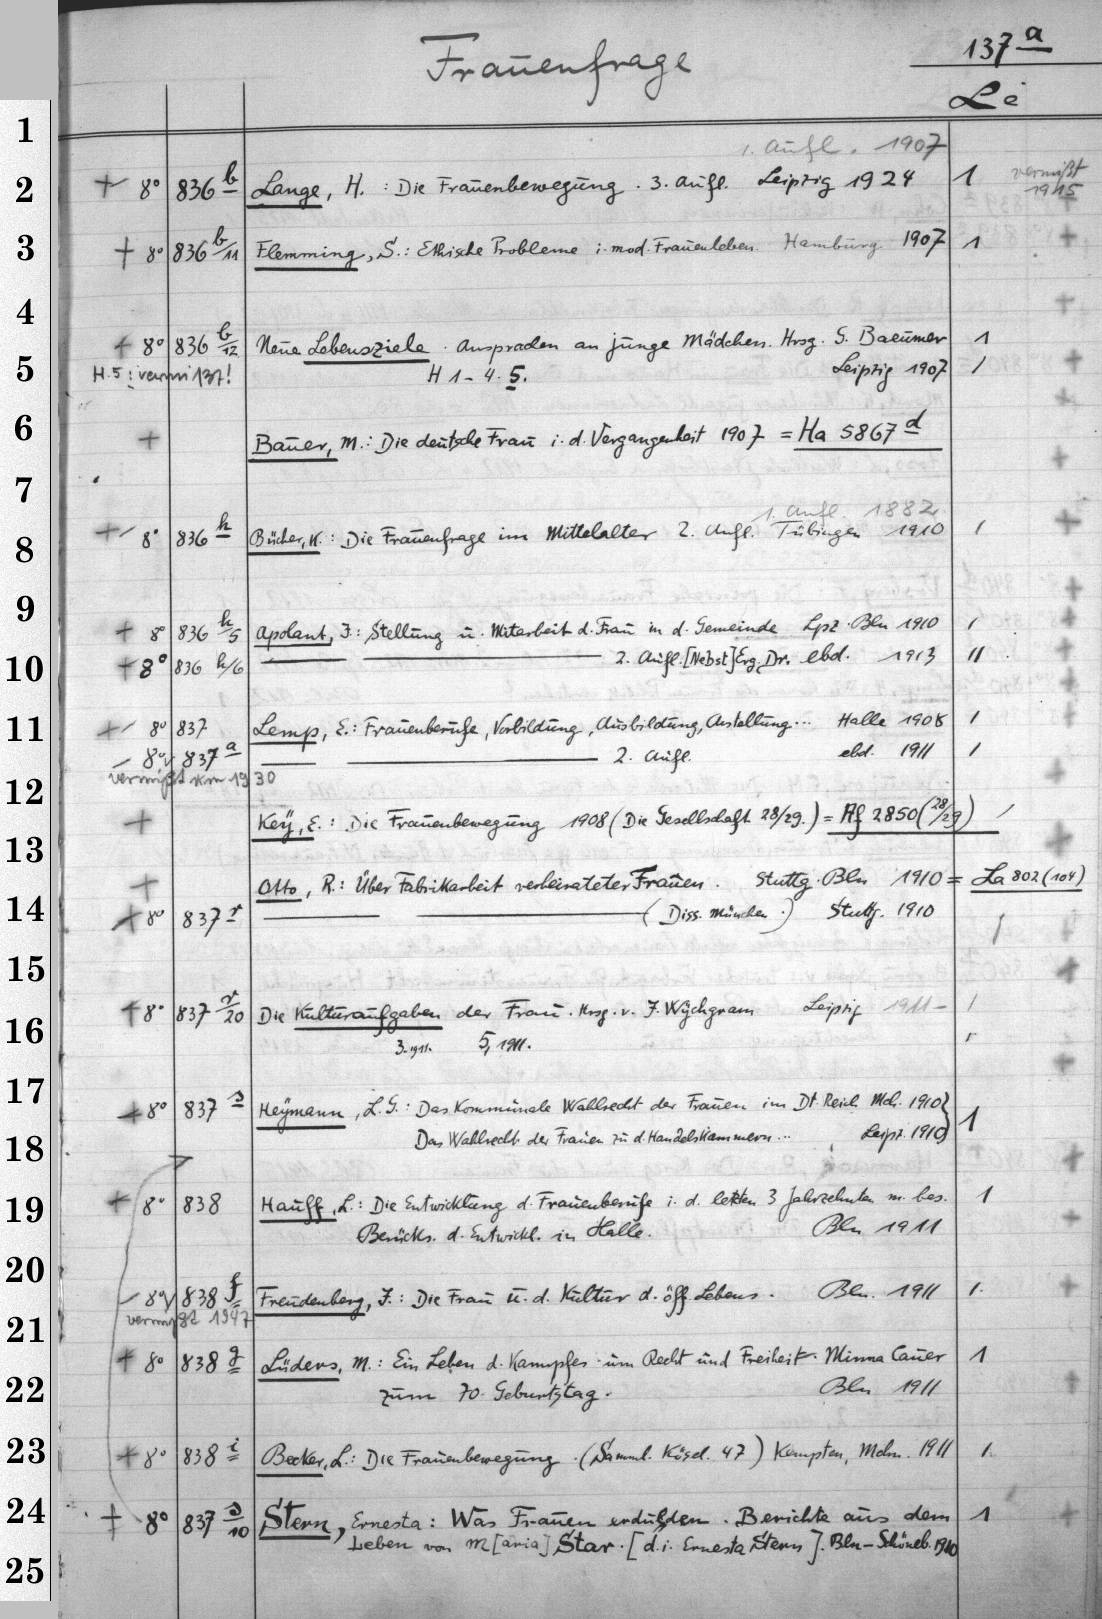 Frauenfrage
137 a
Le
1
1. Aufl. 1907
2 + 8° 836 b Lange, H. : Die Frauenbewegung . 3. Aufl. Leipzig 1924 1 vermißt 1945
3 + 8° 836 b/11 Flemming, S.: Ethische Probleme i. mod. Frauenleben. Hamburg 1907 1
4
+ 8° 836 b/12 Neue Lebensziele . Ansprachen an junge Mädchen. Hrsg. G. Baeumer 1
5 H. 5 : H 1-4. 5. Leipzig 1907 1
6 + Bauer, M.: Die deutsche Frau i. d. Vergangenheit 1907 = Ha 5867 d
7
1. Aufl. 1882
8 + 8° 836 h Bücher, K. : Die Frauenfrage im Mittelalter 2. Aufl. Tübingen 1910 1
9 + 8° 836 h/5 Apolant, J.: Stellung u. Mitarbeit d. Frau in d. Gemeinde Lpz. Bln 1910 1
10 + 8° 836 h/6 2. Aufl. [Nebst] Erg. Dr. ebd. 1913 11
11 + 8° 837 Lemp, E.: Frauenberufe, Vorbildung, Ausbildung, Anstellung... Halle 1908 1
8° 837 a 2. Aufl. ebd. 1911 1
vermißt 1930
12
+ Key, E. : Die Frauenbewegung 1908 (Die Gesellschaft 28/29.) = Af 2850 (28/29) 1
13
+ Otto, R.: Über Fabrikarbeit verheirateter Frauen. Stuttg. Bln 1910 = La 802 (104)
14 + 8° 837 r (Diss. München.) Stuttg. 1910 1
15
16 + 8° 837 r/20 Die Kulturaufgaben der Frau. Hrsg. v. J. Wychgram Leipzig 1911- 1
3. 1911. 5, 1911.
17 + 8° 837 s Heymann, L. G.: Das Kommunale Wahlrecht der Frauen im Dt. Reich Mch. 1910 } 1
18 Das Wahlrecht der Frauen zu d. Handelskammern ... Leipz. 1910
19 + 8° 838 Hauff, L.: Die Entwicklung d. Frauenberufe i. d. letzten 3 Jahrzehnten m. bes. 1
Berücks. d. Entwickl. in Halle. Bln 1911
20 8° 838 f Freudenberg, F.: Die Frau u. d. Kultur d. öff. Lebens. Bln. 1911 1.
21 vermißt 1947
+ 8° 838 g Lüders, M.: Ein Leben d. Kampfes um Recht und Freiheit. Minna Cauer 1
22 zum 70. Geburtstag. Bln 1911
23 + 8° 838 i Becker, L.: Die Frauenbewegung. (Samml. Kösel. 47) Kempten, Mchn. 1911 1.
24 + 8° 837 s/10 Stern, Ernesta: Was Frauen erdulden. Berichte aus dem 1
Leben von M[aria] Star. [d. i. Ernesta Stern]. Bln-Schöneb. 1910
25